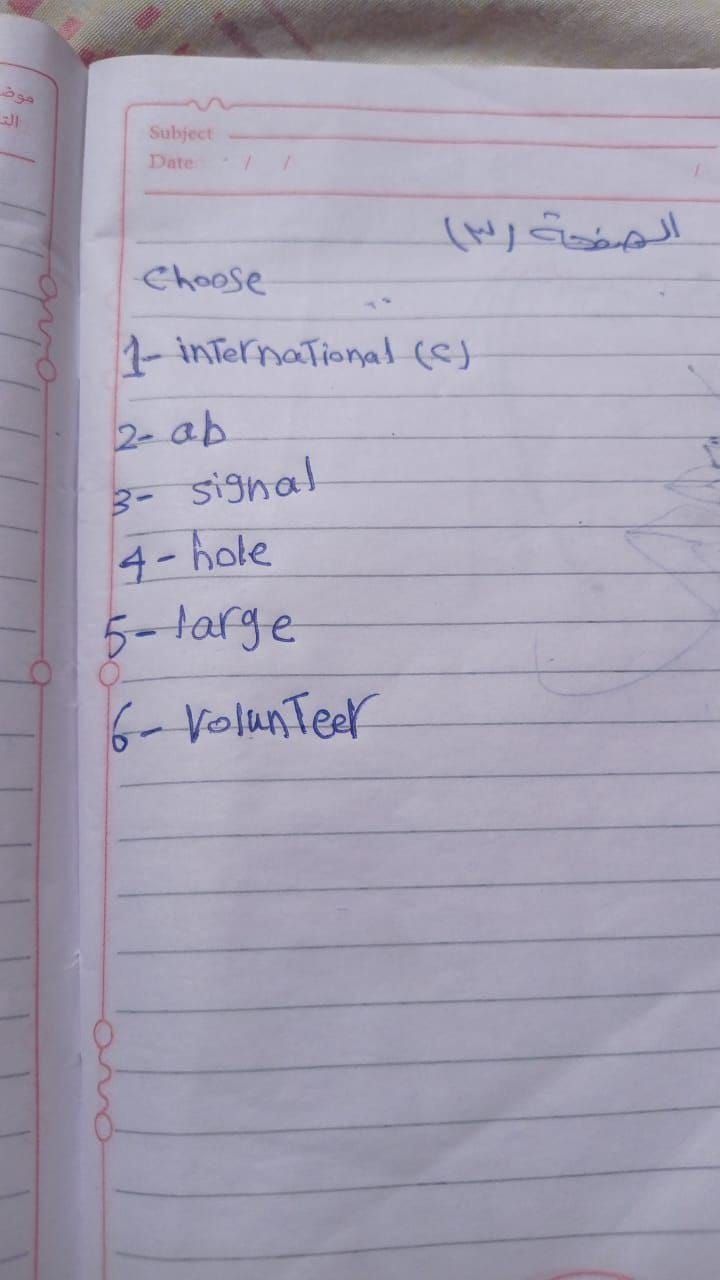 موض
الت
Subject
Date: / /
/
الصفحة (٣)
Choose
1- international (c)
2- ab
3- signal
4- hole
5- large
6- volunteer